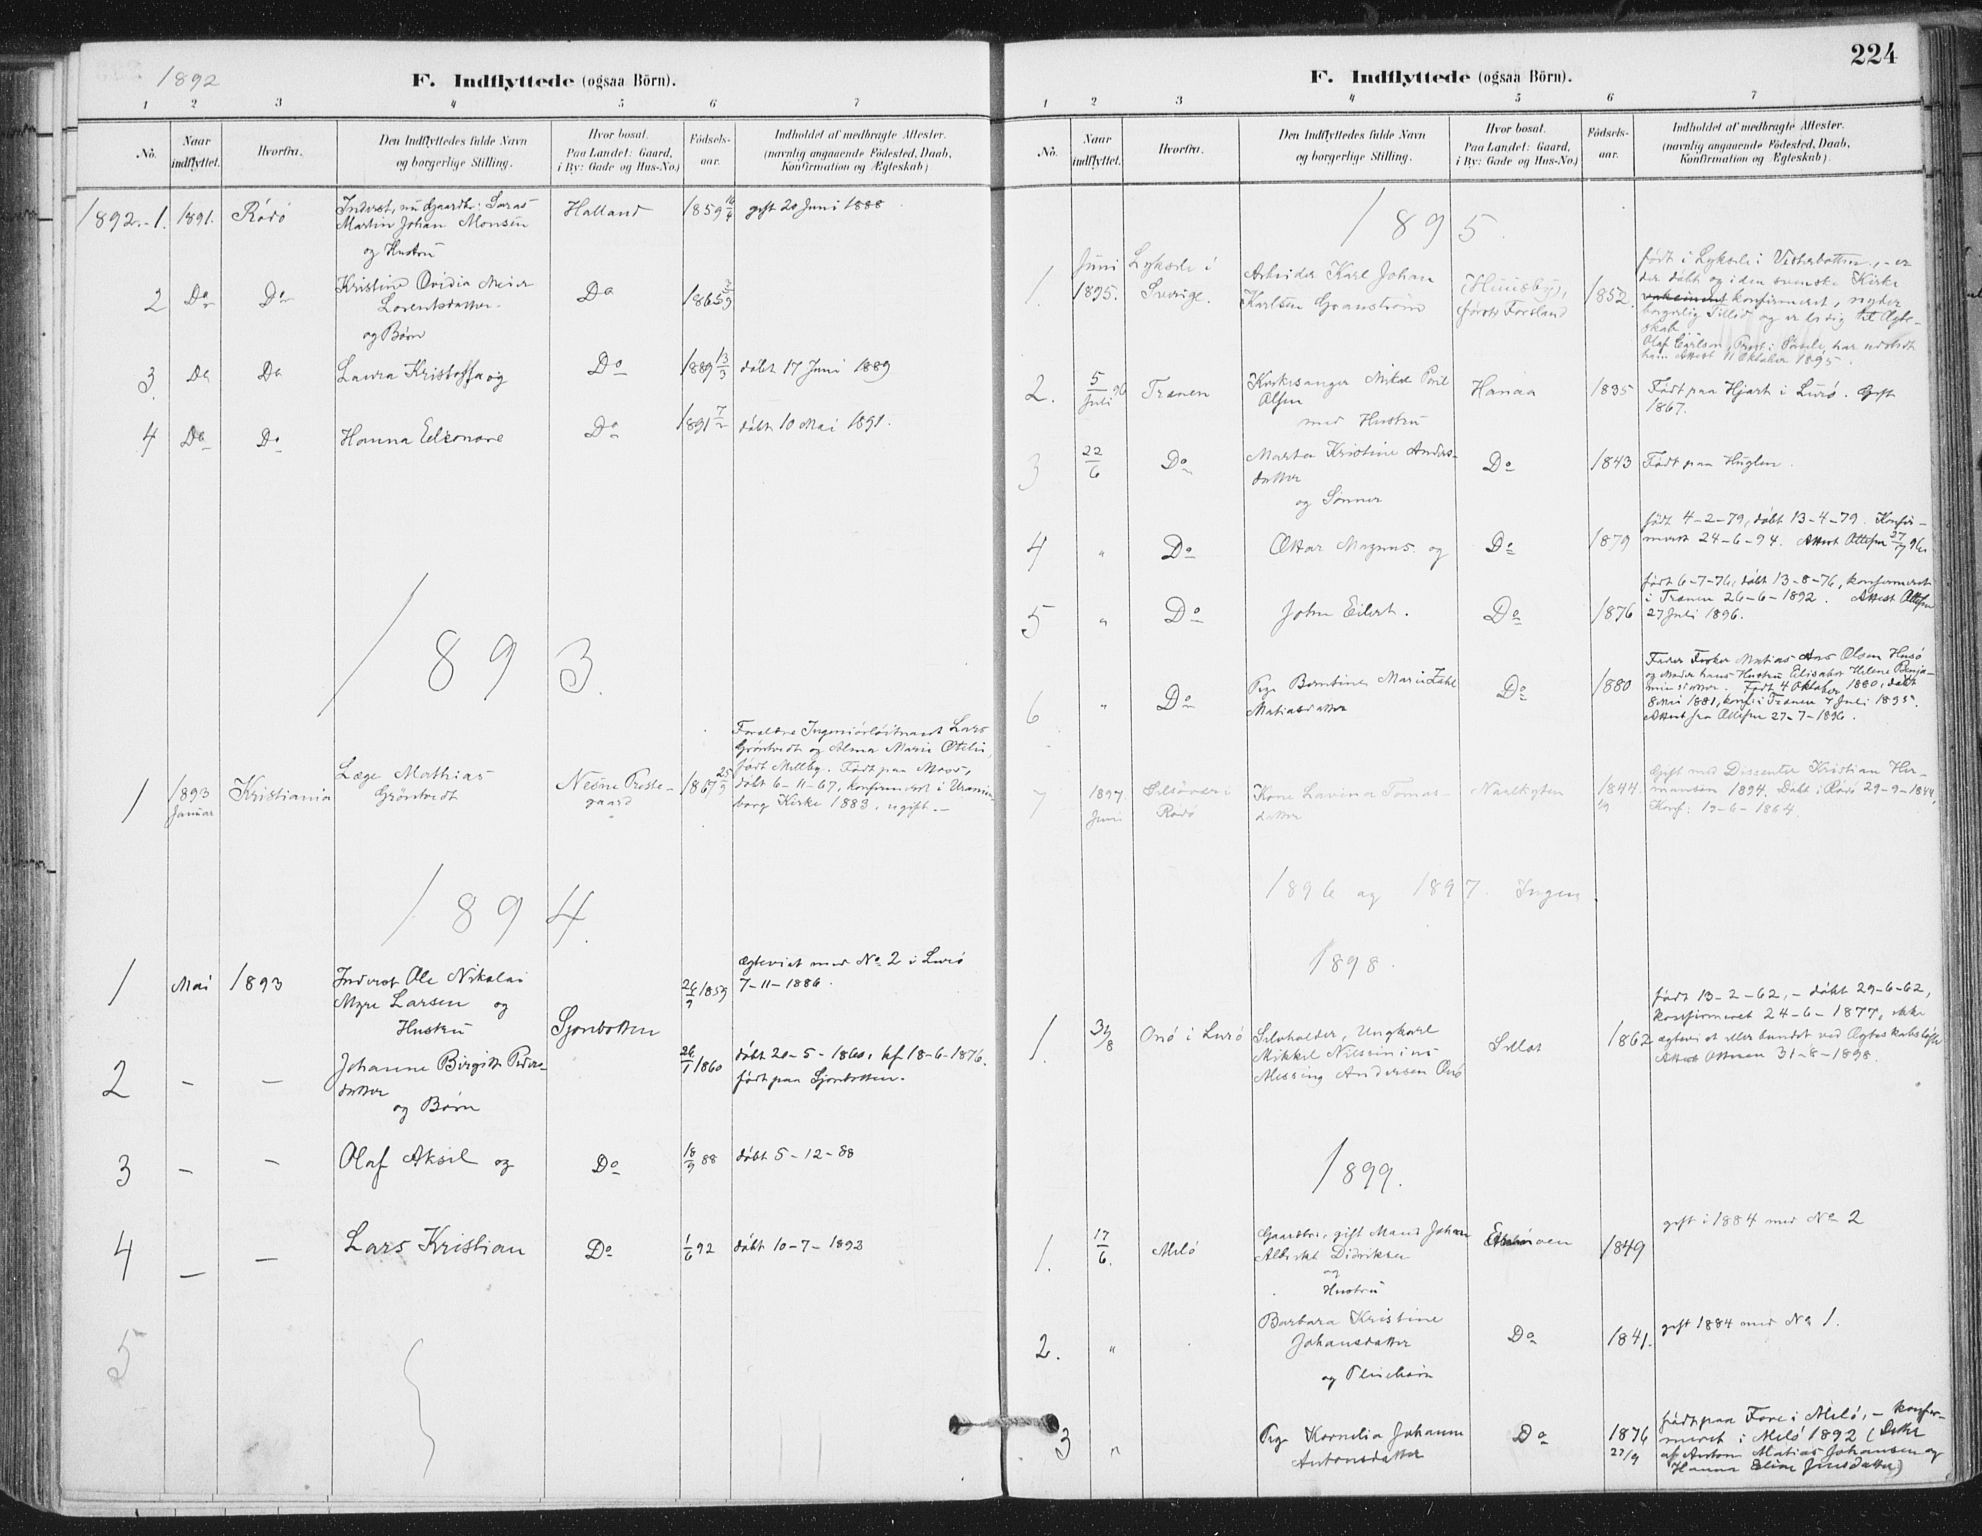 1892
F. Indflyttede (ogsaa Börn).
1 2 3 4 5 6 7
No. Naar indflyttet. Hvorfra. Den Indflyttedes fulde Navn og borgerlige Stilling. Hvor bosat. Paa Landet: Gaard, i By: Gade og Hus-No.) Födsels-aar. Indholdet af medbragte Attester. (navnlig angaaende Födested, Daab, Konfirmation og Ægteskab)
1892.-1. 1891. Rödö Inderst, nu Gaardbr: Halland 1859 gift 20 Juni 1888
Martin Johan Monsen
og Hustru
2 Do Do Kristine Ovidia Meier Do 1865
Lorentsdatter
og Børn
3. Do Do Laura Kristoffa og Do 1889 13/3 döbt 17 Juni 1889
4 Do Do Hanna Do 1891 7/2 döbt 10 Mai 1891.
1893.
Forældre Lars
Gröntvedt og Alma Marie
Læge Mathias født Millby. Født paa Moss,
1 1893 Kristiania Gröntvedt Nesne Preste- 1867 25/9 döbt 6-11-67, konfirmeret i Uranien-
Januar gaard borg Kirke 1883, ugift.-
1894.
ægteviet med No 2 i Lurö
1 Mai 1893 Inderst Ole Nikolai 1859 7-11-1886.
Myre Larsen og
Hustru Sjonbotten
2 – – Johanne Birgitte Peders- 1860 döbt 20-5-1860, kf 18-6-1876.
datter født paa Sjonbotten.
og Børn
3 – – Olaf Aksel og Do 18/9 88 döbt 5-12-88
4 – – Lars Kristian Do 1/6 92 döbt 10-7-1892
5
224
F. Indflyttede (ogsaa Börn).
1 2 3 4 5 6 7
No. Naar indflyttet. Hvorfra. Den Indflyttedes fulde Navn og borgerlige Stilling. Hvor bosat. Paa Landet: Gaard, i By: Gade og Hus-No.) Födsels-aar. Indholdet af medbragte Attester. (navnlig angaaende Födested, Daab, Konfirmation og Ægteskab).
1895.
født i Lyksele i Vesterbotten, - er
Juni Lyksele i Arbeider Karl Johan der döbt og i den svenske Kirke
1. 1895. Sverige. Karlsen Granström först Forsland 1852. konfirmeret, nyder
borgerlig Tillid og er ledig til Ægte-
skab
ham Attest 11 Oktober 1895.
2. 5/Juli 96 Trænen Kirkesanger Mikal Hanaa 1835 Født paa Hjart i Lurö. Gift
Olsen 1867.
med Hustru
3 22/6 Do Marta Kristine Anders- Do 1843 Født paa Huglen.
datter
og Sønner
født 4-2-79, döbt 13-4-79. Konfir-
4 " Do Ottar Magnus. og Do 1879 meret 24-6-94. Attest Ottesen 27/7 96.
født 6-7-76, döbt 13-8-76, konfirmeret
5 " Do John Eilert. Do 1876 i Trænen 26-6-1892. Attest Ottesen
27 Juli 1896.
Fader Fisker Matias Olsen Husö
6 " Do Pige Berntine Marie Do 1880 og Moder hans Hustru Elisabet Helene Benja-
Matiasdatter minsdatter. Født 4 Oktober 1880, döbt
8 Mai 1881, konf i Trænen 7 Juli 1895.
Attest fra Ottesen 27-7-1896.
7 1897 i Kone Lavina Tomas- 1844 Gift med Dissenter Kristian Her-
Juni Rödö datter mansen 1894. Döbt i Rödö 29-9-1844,
Konf: 19-6-1864.
1896 og 1897. Ingen
1898.
født 13-2-62, - döbt 29-6-62,
konfirmeret 24-6-1877, ikke
1. 31/8 Onö i Lurö Ungkarl 1862 ægteviet eller bundet ved Ægteskabslöfte
Mikkel Attest Ottesen 31-8-1898.
Messing Andersen Onö
1899.
1. 17/6. Melö Gaardbr., gift Mand Johan 1849 gift i 1884 med No 2
Albrikt Didriksen
og
Hustru
2. " Barbara Kristine Do 1841. gift 1884 med No 1.
Johansdatter
og Pleiebörn
3 " Pige Kornelia Johanne Do 1876 født paa Fore i Melö, - konfir-
Antonsdatter 27/9 meret i Melö 1892 (Datter
af Anton Matias Johansen og
Hanna Eline Jensdatter)